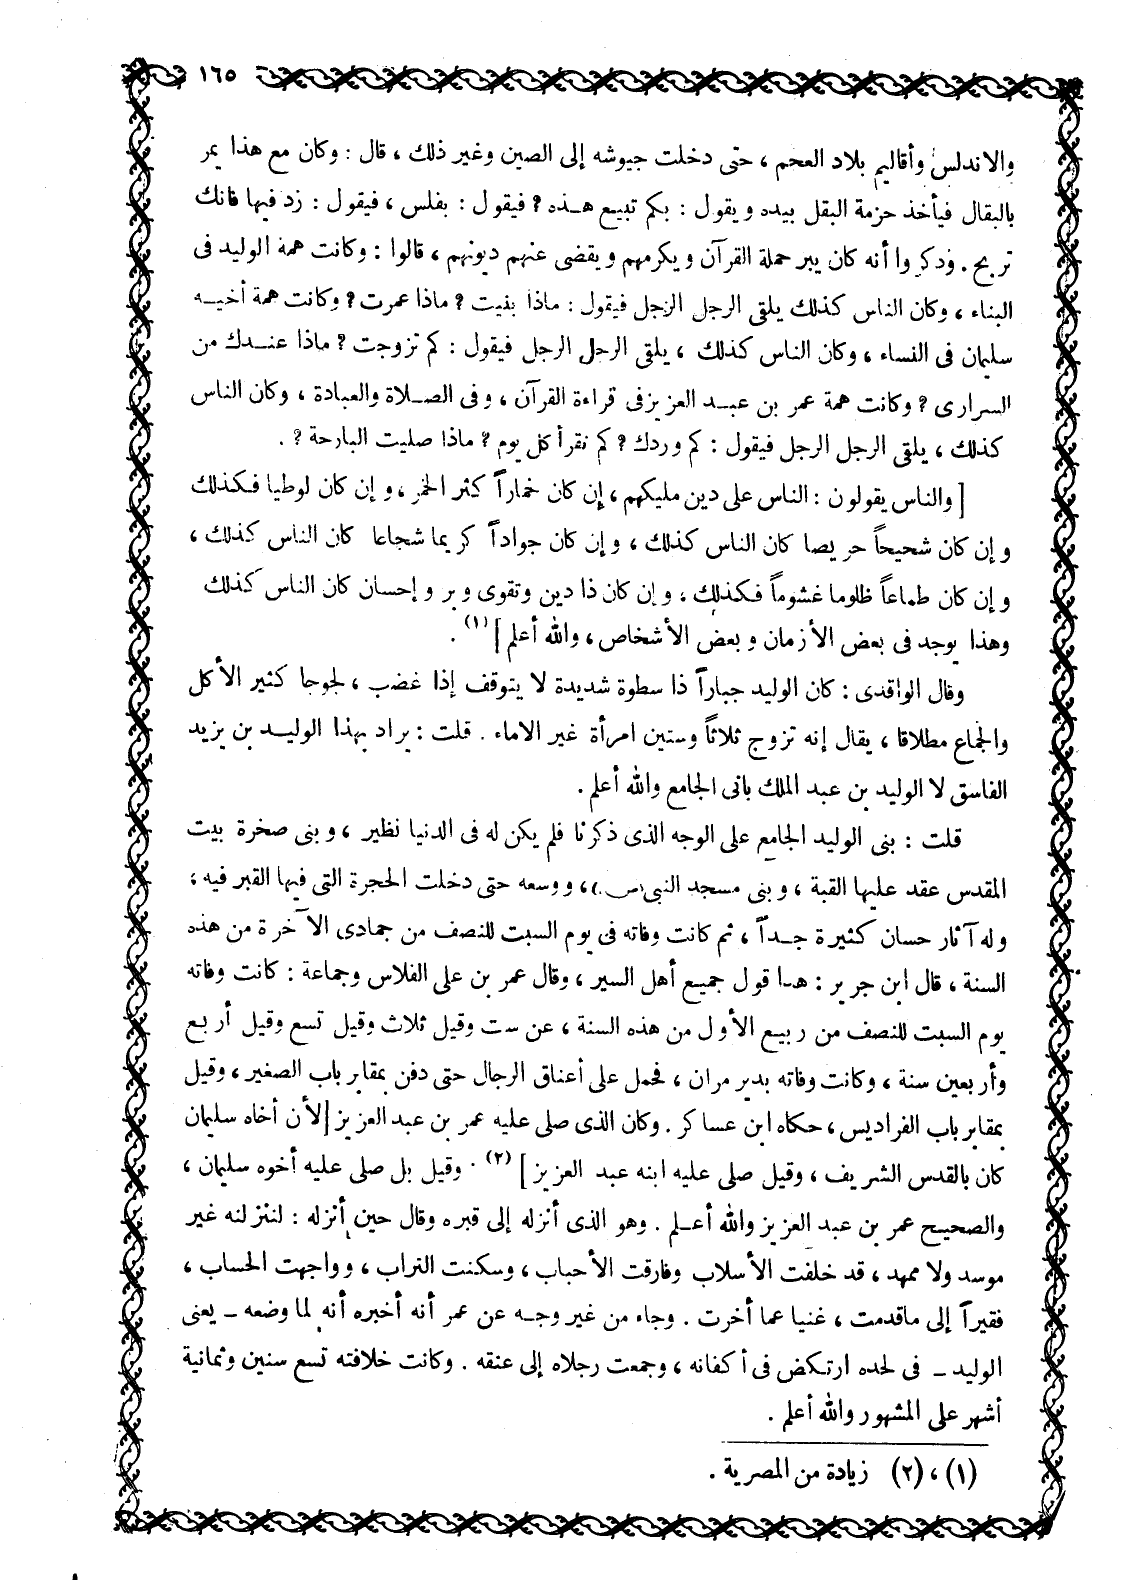 ١٦٥
والاندلس وأقاليم بلاد العجم ، حتى دخلت جيوشه إلى الصين وغير ذلك ، قال : وكان مع هذا يمر
بالبقال فيأخذ حزمة البقل بيده ويقول : بكم تبيع هذه ? فيقول : بفلس ، فيقول : زد فيها فانك
تربح . وذكروا أنه كان يبر حملة القرآن ويكرمهم ويقضى عنهم ديونهم ، قالوا : وكانت همة الوليد فى
البناء ، وكان الناس كذلك يلقى الرجل الرجل فيقول : ماذا بنيت ? ماذا عمرت ? وكانت همة أخيه
سليمان فى النساء ، وكان الناس كذلك ، يلقى الرجل الرجل فيقول : كم تزوجت ? ماذا عندك من
السرارى ? وكانت همة عمر بن عبد العزيز فى قراءة القرآن ، وفى الصلاة والعبادة ، وكان الناس
كذلك ، يلقى الرجل الرجل فيقول : كم وردك ? كم تقرأ كل يوم ? ماذا صليت البارحة ? .
[ والناس يقولون : الناس على دين مليكهم ، إن كان خماراً كثر الخمر ، وإن كان لوطيا فكذلك
وإن كان شحيحاً حريصا كان الناس كذلك ، وإن كان جواداً كريما شجاعا كان الناس كذلك ،
وإن كان طماعاً ظلوما غشوماً فكذلك ، وإن كان ذا دين وتقوى وبر وإحسان كان الناس كذلك
وهذا يوجد فى بعض الأزمان وبعض الأشخاص ، والله أعلم ] (١) .
وقال الواقدى : كان الوليد جباراً ذا سطوة شديدة لا يتوقف إذا غضب ، لجوجا كثير الأكل
والجماع مطلاقا ، يقال إنه تزوج ثلاثاً وستين امرأة غير الاماء . قلت : يراد بهذا الوليد بن يزيد
الفاسق لا الوليد بن عبد الملك بانى الجامع والله أعلم .
قلت : بنى الوليد الجامع على الوجه الذى ذكرنا فلم يكن له فى الدنيا نظير ، وبنى صخرة بيت
المقدس عقد عليها القبة ، وبنى مسجد النبى (ص) ، ووسعه حتى دخلت الحجرة التى فيها القبر فيه ،
وله آثار حسان كثيرة جداً ، ثم كانت وفاته فى يوم السبت للنصف من جمادى الآخرة من هذه
السنة ، قال ابن جرير : هذا قول جميع أهل السير ، وقال عمر بن على الفلاس وجماعة : كانت وفاته
يوم السبت للنصف من ربيع الأول من هذه السنة ، عن ست وقيل ثلاث وقيل تسع وقيل أربع
وأربعين سنة ، وكانت وفاته بدير مران ، فحمل على أعناق الرجال حتى دفن بمقابر باب الصغير ، وقيل
بمقابر باب الفراديس ، حكاه ابن عساكر . وكان الذى صلى عليه عمر بن عبد العزيز [ لأن أخاه سليمان
كان بالقدس الشريف ، وقيل صلى عليه ابنه عبد العزيز ] (٢) . وقيل بل صلى عليه أخوه سليمان ،
والصحيح عمر بن عبد العزيز والله أعلم . وهو الذى أنزله إلى قبره وقال حين أنزله : لننزلنه غير
موسد ولا ممهد ، قد خلفت الأسلاب وفارقت الأحباب ، وسكنت التراب ، وواجهت الحساب ،
فقيراً إلى ماقدمت ، غنيا عما أخرت . وجاء من غير وجه عن عمر أنه أخبره أنه لما وضعه ــ يعنى
الوليد ــ فى لحده ارتكض فى أكفانه ، وجمعت رجلاه إلى عنقه . وكانت خلافته تسع سنين وثمانية
أشهر على المشهور والله أعلم .
(١) ، (٢) زيادة من المصرية .